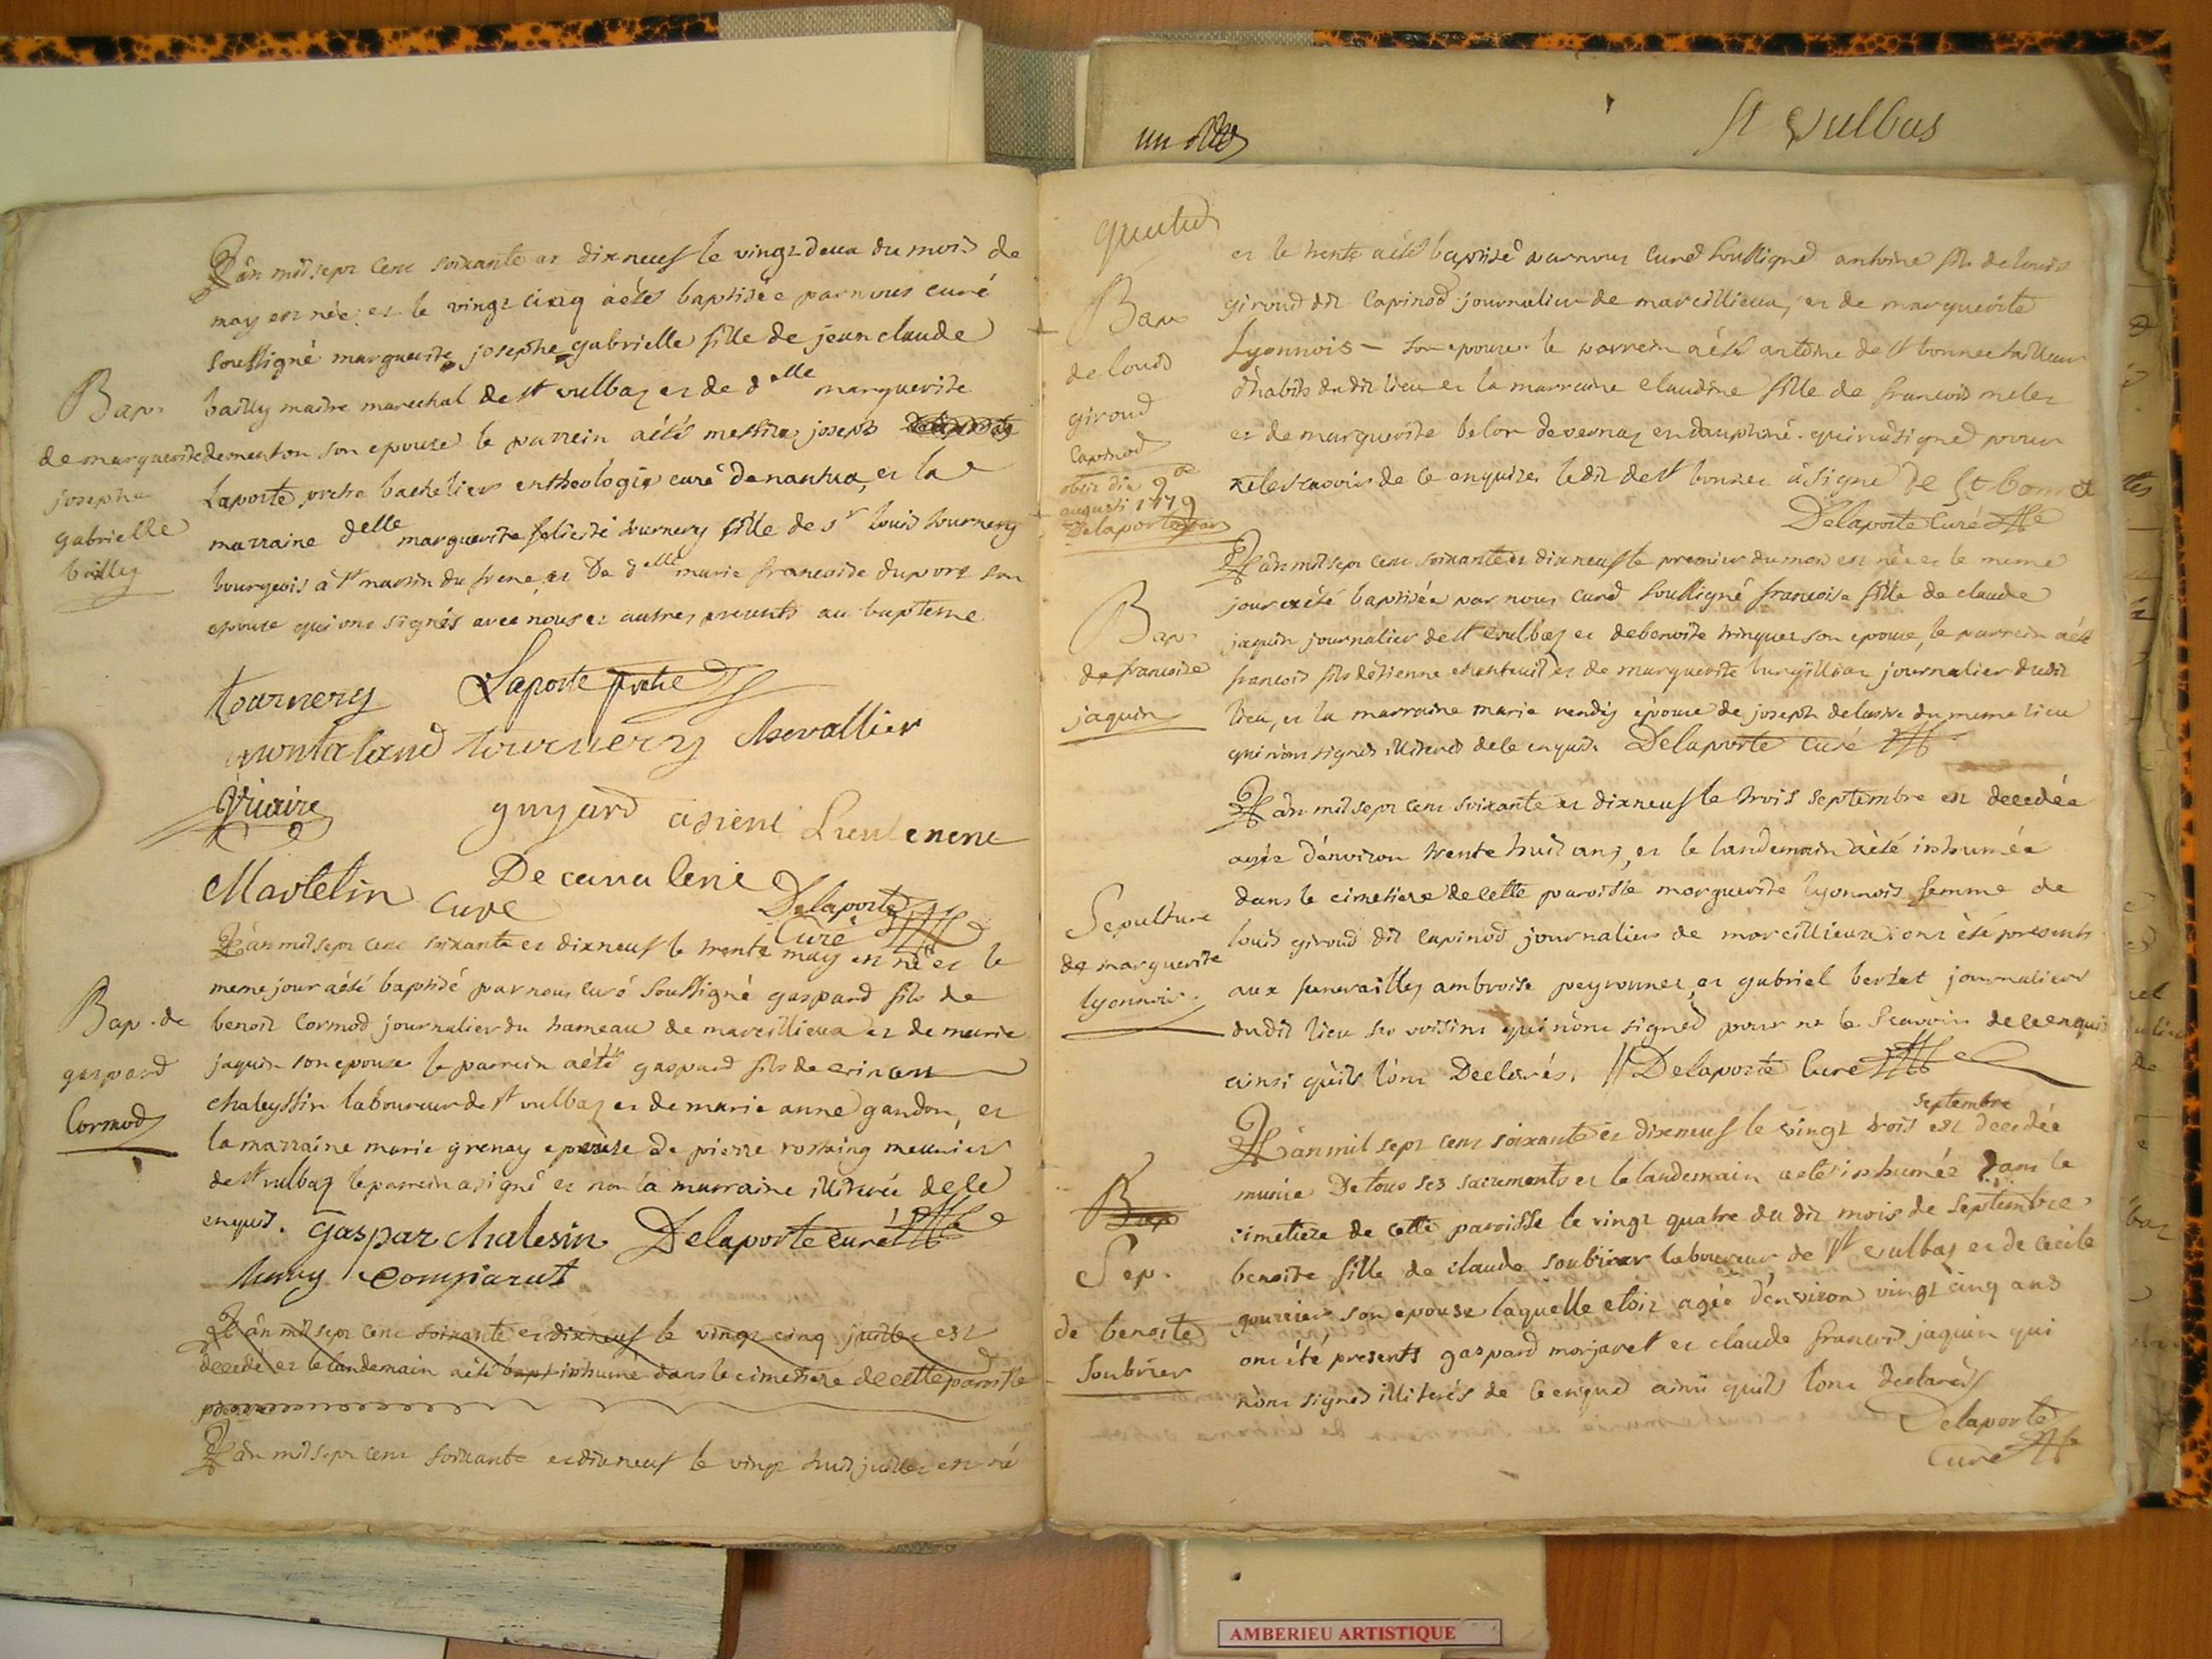 St vulbas
L'an mil sept cent soixante et dix neuf le vingt deux du mois de
may est née et le vingt cinq a étés baptisée par nous curé
soussigné marguerite josephe gabrielle fille de jean claude
bailly maitre marechal de st vulbaz et de delle marguerite
dementon son epouse le parrein a étés messire joseph
Laporte pretre bachelier en theologie curé de nantua, et la
marraine delle marguerite felicité tournery fille de sr louis tournery
bourgeois à st martin du frene, et de delle marie francoise duport son
epouse qui ont signés avec nous et autres presents au bapteme
Bap.
de marguerite
josephe
gabrielle
bailly
tournery Laporte pretre
montaland tournery chevallier
Vicaire guyard adient Lieutenent
Martelin curé
Delaporte
Curé
L'an mil sept cent soixante et dix neuf le trente may est né et le
meme jour a été baptisé par nous curé soussigné gaspard fils de
benoit Cormod journalier du hameau de marcillieux et de marie
jaquin son epouse le parrein a été gaspard fils de
chaleyssin laboureur de st vulbaz et de marie anne gandon, et
la marraine marie grenay epouse de pierre rostaing meunier
de st vulbaz le parrein a signé et non la marraine illiterée de ce
enquis. gaspar chalesin Delaporte curé
Bap. de
gaspard
Cormod
L'an mil sept cent soixante et dix neuf le vingt cinq juillet est
decedé et le landemain a été bapt inhumé dans le cimetiere de cette paroisse
L'an mil sept cent soixante et dix neuf le vingt huit juillet est né
et le trente a été baptisé par nous curé soussigné antoine fils de louis
giroud dit Capinod journalier de marcillieux, et de marguerite
Lyonnois son epouse le parrein a été antoine de st bonnet tailleur
d'habits du dit lieu et la marraine claudine fille de francois melet
et de marguerite belon de vernaz en dauphiné qui n'a signé pour
ne le scavoir de ce enquise le dit de st bonnet a signé de St bonnet
Delaporte Curé
Bap
de louis
giroud
Capinod
obiit die 9a
augusti 1779
Delaporte
L'an mil sept cent soixante et dix neuf le premier du mois est née et le meme
jour a été baptisée par nous curé soussigné francoise fille de claude
jaquin journalier de st vulbaz et de benoite trinquet son epouse, le parrein a été
francois fils d'étienne chanteuil et de marguerite journalier du dit
lieu, et la marraine marie rendy épouse de joseph du meme lieu
qui n'ont signés illiterés de ce enquis. Delaporte curé
Bap.
de francoise
jaquin
L'an mil sept cent soixante et dix neuf le trois septembre est decedée
agée d'environ trente huit ans, et le landemain a été inhumée
dans le cimetiere de cette paroisse marguerite lyonnois femme de
louis giroud dit capinod journalier de marcillieux ont été presents
aux funerailles ambroise peyronnet, et gabriel bertet journaliers
du dit lieu ses voisins qui n'ont signés pour ne le scavoir de ce enquis
ainsi qu'ils l'ont Declarés. Delaporte Curé
Sepulture
de marguerite
lyonnois
septembre
L'an mil sept cent soixante et dix neuf le vingt trois est decedée
munie De tous ses sacrements et le landemain a été inhumée Dans le
cimetiere de cette paroisse le vingt quatre du dit mois de septembre
benoite fille de claude soubrier laboureur de st vulbas et de cecile
gourrier son epouse laquelle etoit agée d'environ vingt cinq ans
ont été presents gaspard morjaret et claude francois jaquin qui
n'ont signés illiterés de ce enquis ainsi qu'ils l'ont declarés
Delaporte
Curé
Bap
Sep.
de benoite
Soubrier
AMBERIEU ARTISTIQUE